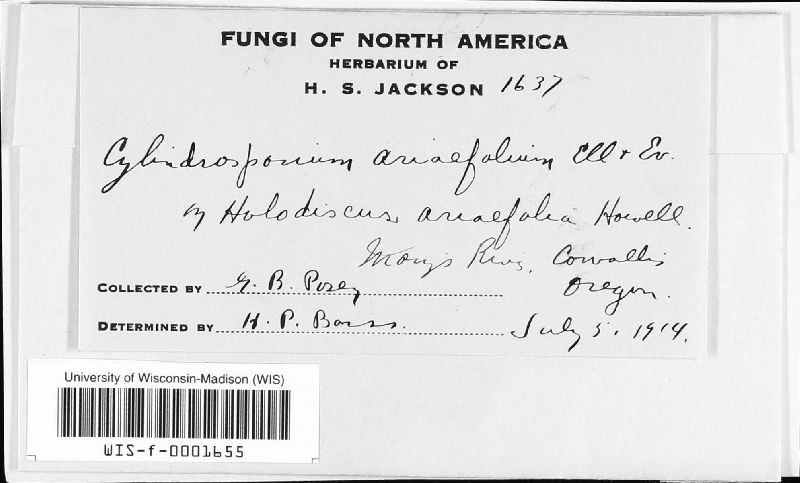 FUNGI OF NORTH AMERICA
HERBARIUM OF
H. S. JACKSON 1637
Cylindrosporium ariaefolium Ell & Ev.
on Holodiscus ariaefolia Howell.
Marys River, Corvallis
Oregon.
COLLECTED BY G. B. Posey
DETERMINED BY H. P. Barss. July 5, 1914.
University of Wisconsin-Madison (WIS)
WIS-f-0001655